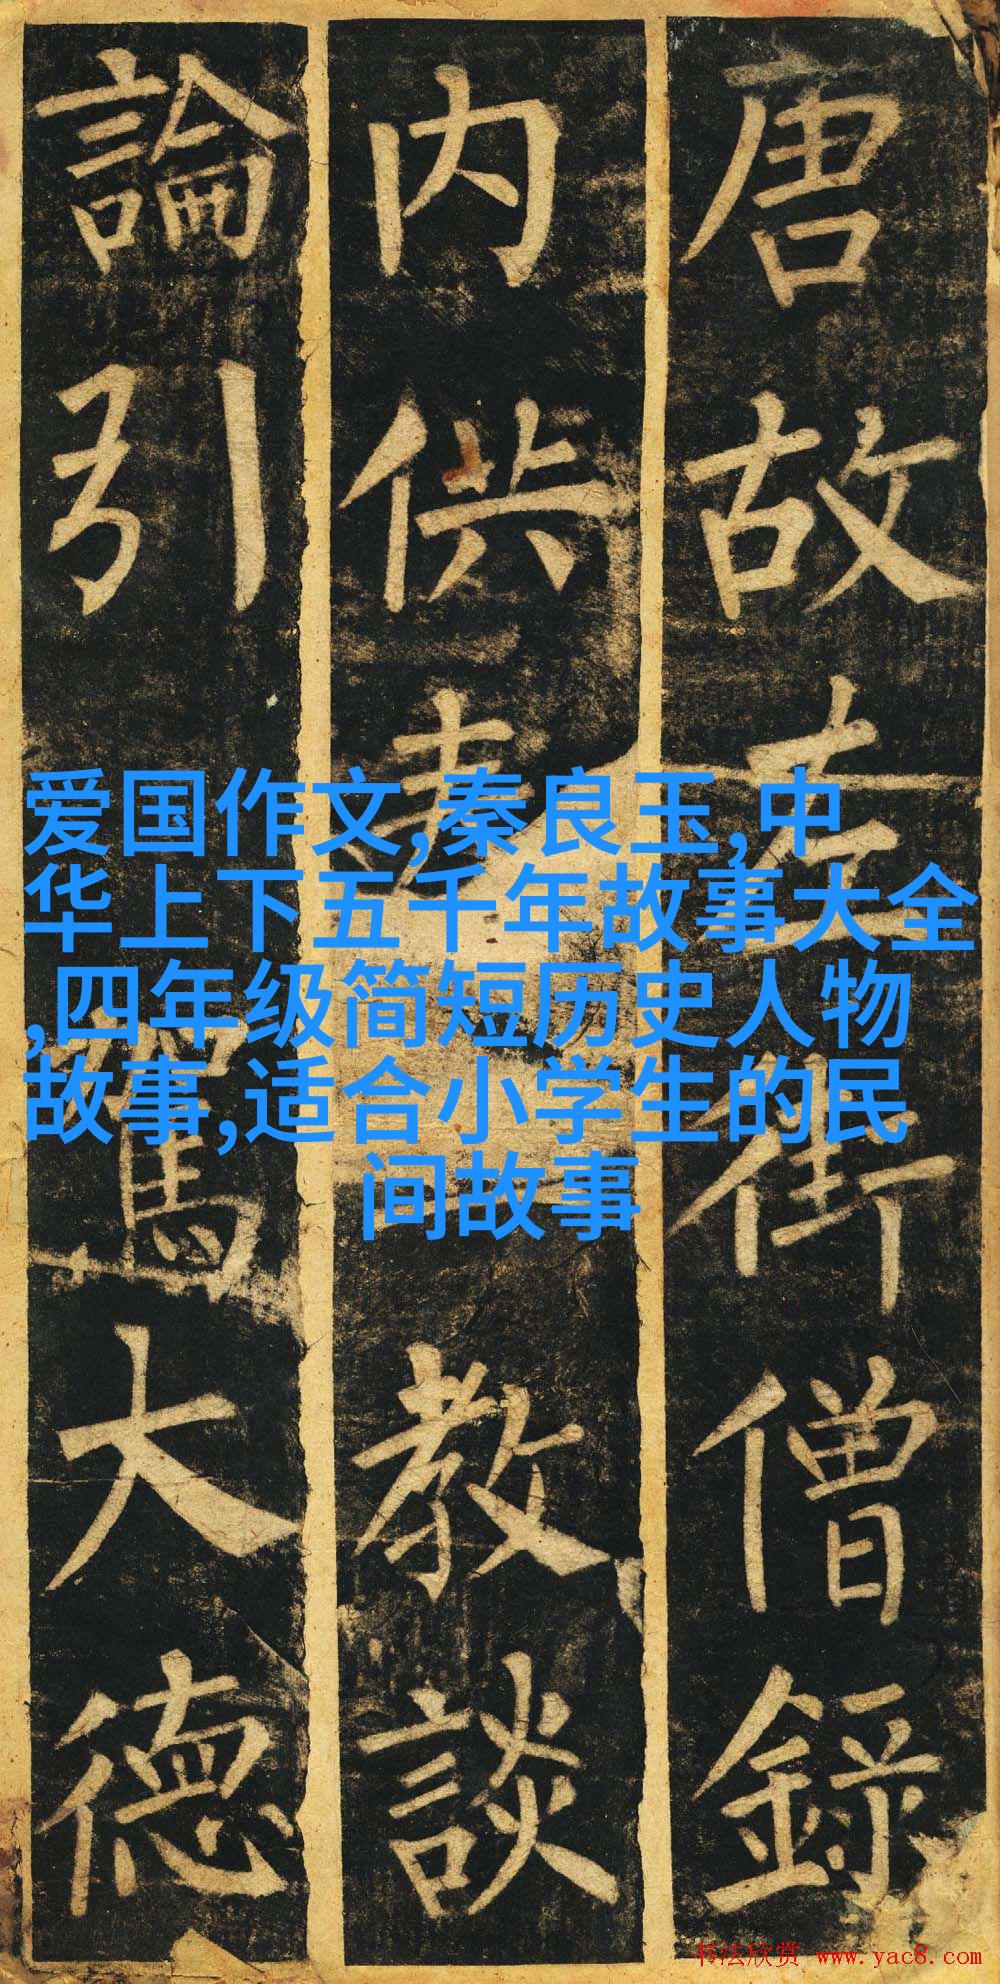 唐故左街僧錄
内供奉教談
論引駕大德
爱国作文,秦良玉,中
华上下五千年故事大全
,四年级简短历史人物
故事,适合小学生的民
间故事
书法欣赏 www.yac8.com